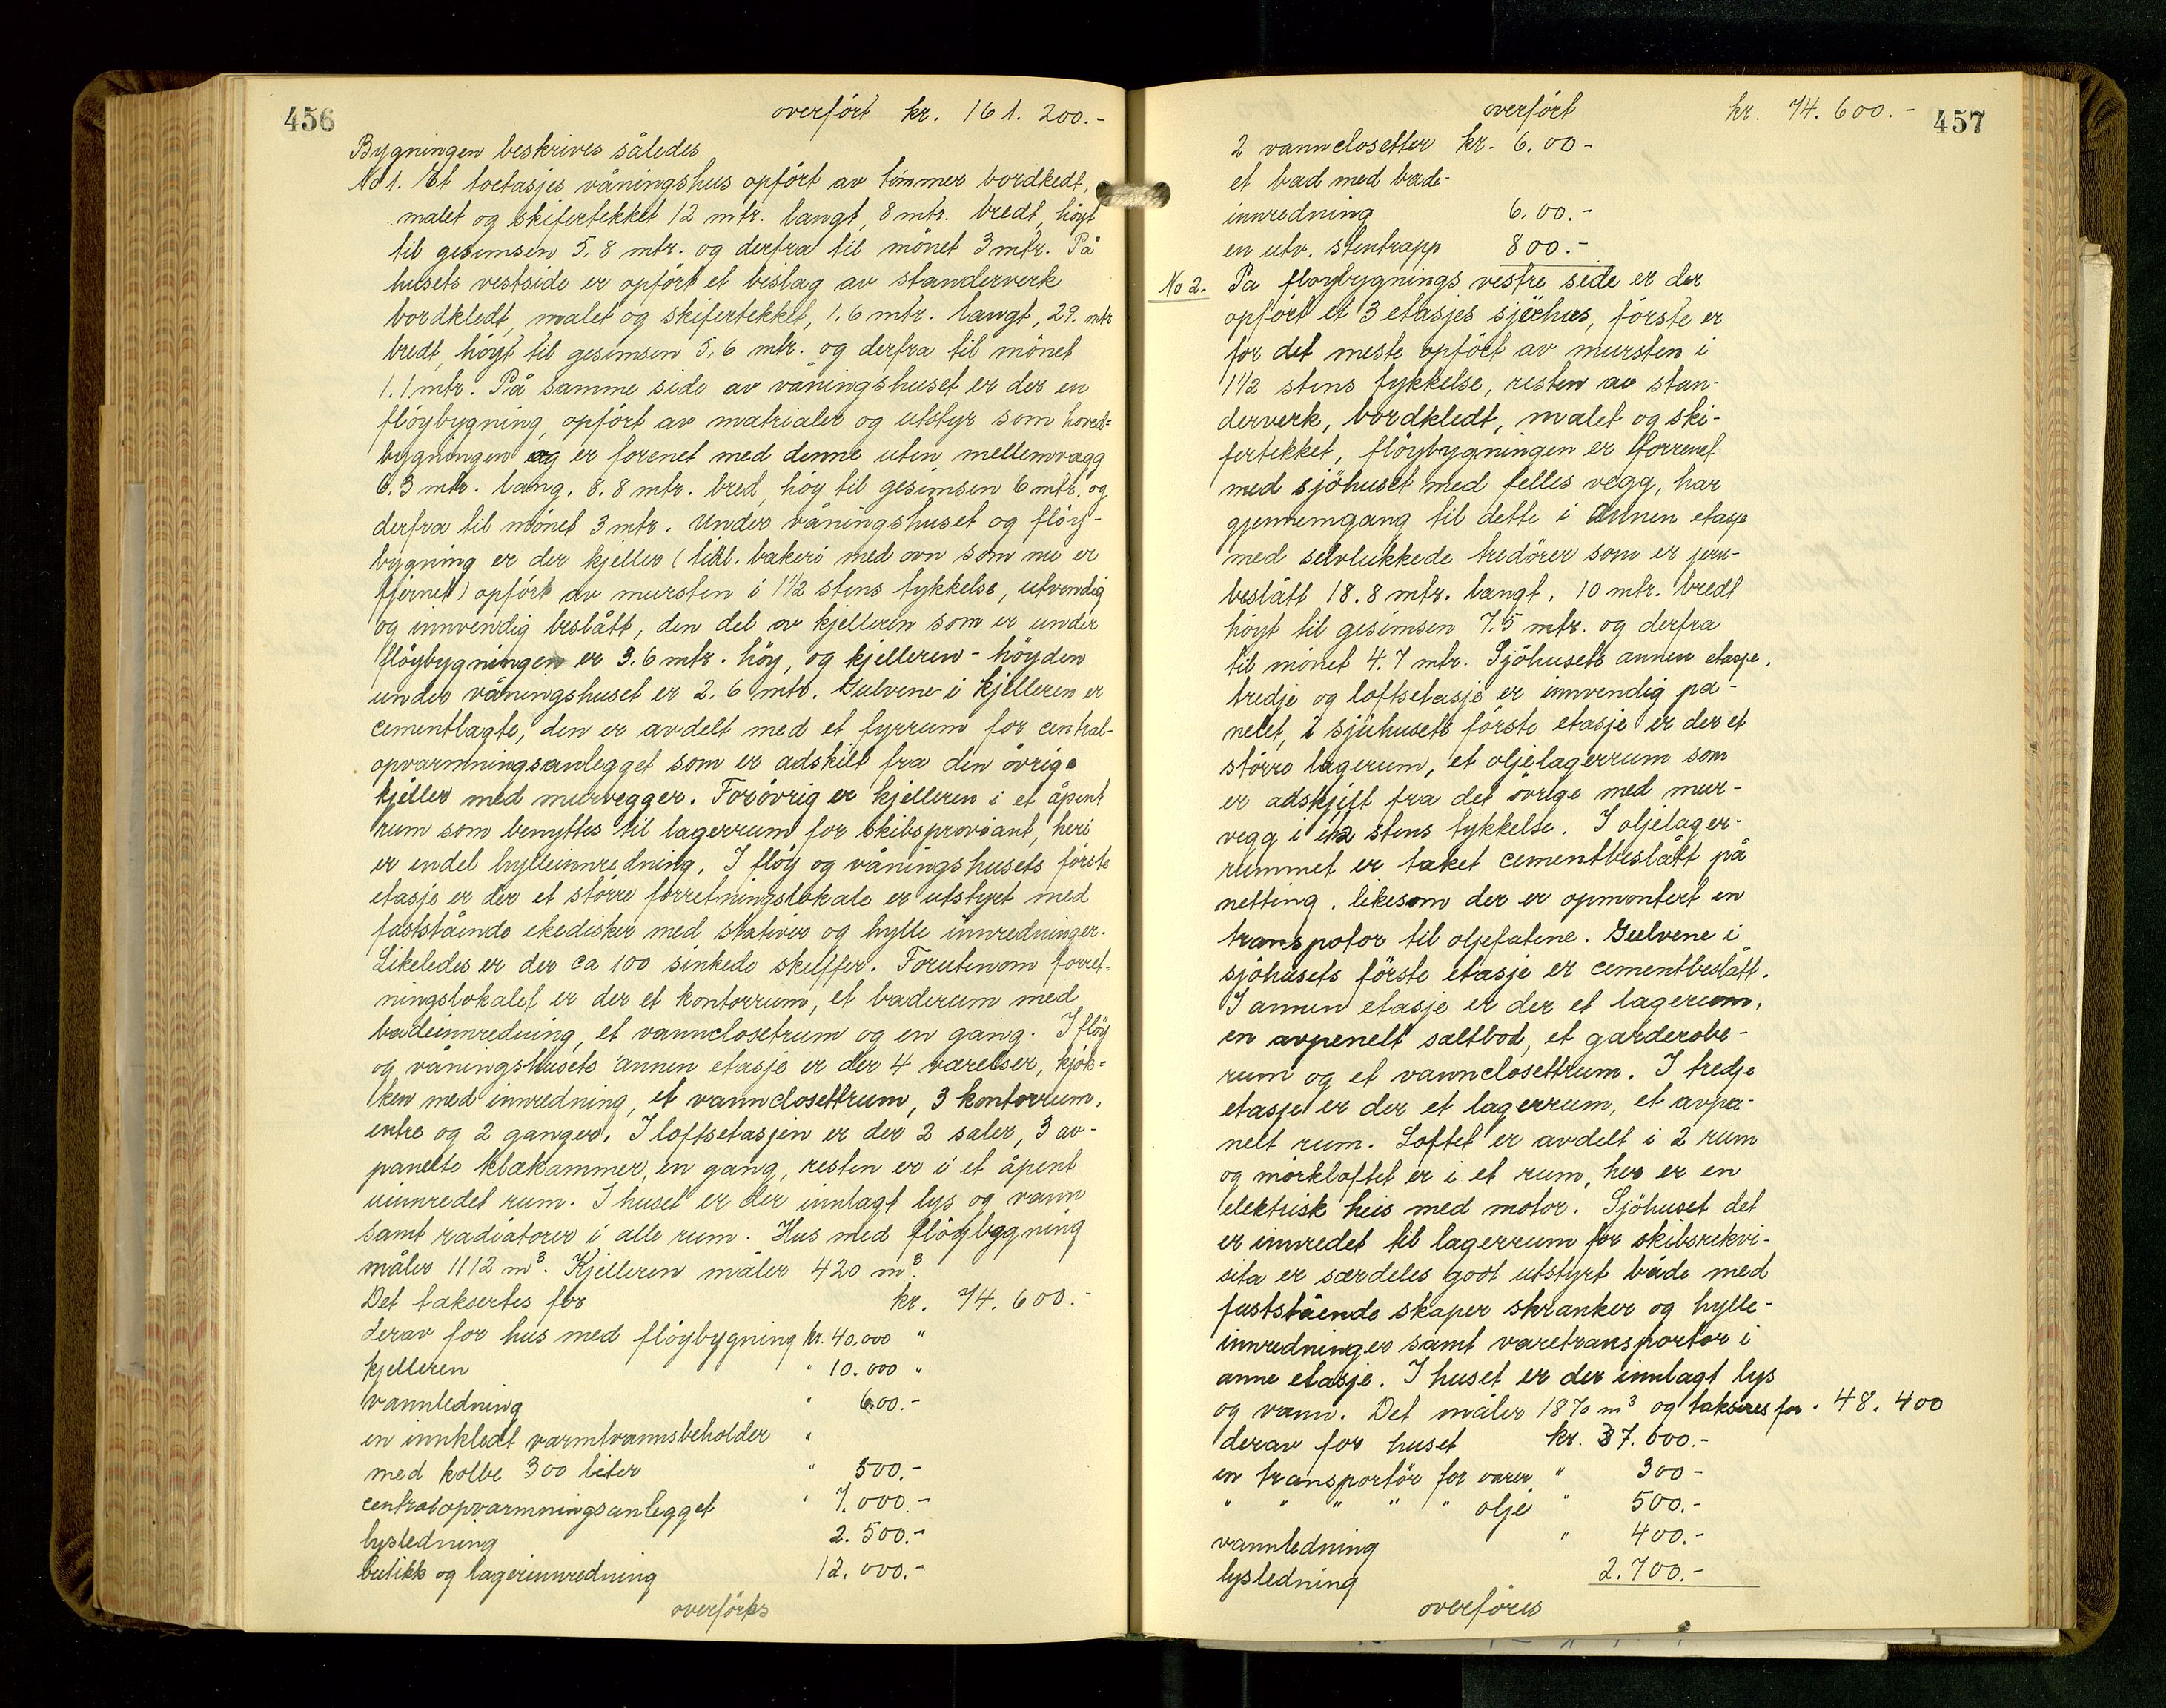 456
overført kr. 161.200.-
Bygningen beskrives således
No 1. Et toetasjes våningshus opført av tømmer bordkledt,
malet og skifertekket 12 mtr. langt, 8 mtr. bredt, høyt
til gesimsen 5.8 mtr. og derfra til mønet 3 mtr. På
husets vestside er opført et bislag av standerverk
bordkledt, malet og skifertekket, 1.6 mtr. langt, 29. mtr
bredt, høyt til gesimsen 5,6 mtr. og derfra til mønet
1.1 mtr. På samme side av våningshuset er der en
fløybygning, opført av matrialer og utstyr som hoved-
bygningen og er forenet med denne uten mellemvægg
6.3 mtr. lang. 8.8 mtr. bred, høy til gesimsen 6 mtr. og
derfra til mønet 3 mtr. Under våningshuset og fløy-
bygning er der kjeller (tidl. bakeri med ovn som nu er
fjernet) opført av mursten i 1 1/2 stens tykkelse, utvendig
og innvendig beslått, den del av kjelleren som er under
fløybygningen er 3.6 mtr. høy, og kjelleren - høyden
under våningshuset er 2.6 mtr. Gulvene i kjelleren er
cementlagte, den er avdelt med et fyrrum for central-
opvarmningsanlegget som er adskilt fra den øvrige
kjeller med murvegger. Forøvrig er kjelleren i et åpent
rum som benyttes til lagerrum for skibsproviant, heri
er endel hylleinnredning. I fløy og våningshusets første
etasje er der et større forretningslokale er utstyrt med
faststående ekedisker med stativer og hylle innredninger.
Likeledes er der ca 100 sinkede skuffer. Forutenom forret-
ningslokalet er der et kontorrum, et baderum med
badeinnredning, et vannclosetrum og en gang. I fløy
og våningshusets annen etasje er der 4 værelser, kjøk-
ken med innredning, et vannclosettrum, 3 kontorrum,
entre og 2 ganger. I loftsetasjen er der 2 saler, 3 av-
panelte klækammer, en gang, resten er i et åpent
uinnredet rum. I huset er der innlagt lys og vann
samt radiatorer i alle rum. Hus med fløybygning
måler 1112 m³. Kjelleren måler 420 m³.
Det taksertes for kr. 74.600.-
derav for hus med fløybygning kr. 40.000 "
kjelleren " 10.000 "
vannledning " 600.-
en innkledt varmtvannsbeholder "
med kolbe 300 liter " 500.-
centralopvarmningsanlegget " 7.000.-
lysledning 2.500.-
butikk og lagerinnredning 12.000.-
overføres
457
overført kr. 74.600.-
2 vannclosetter kr. 6.00-
et bad med bade-
innredning 6.00.-
en utv. stentrapp 800.-
No 2. På fløybygnings vestre side er der
opført et 3 etasjes sjøhus, første er
for det meste opført av mursten i
1 1/2 stens tykkelse, resten av stan-
derverk, bordkledt, malet og ski-
fertekket, fløybygningen er forrenet
med sjøhuset med felles vegg, har
gjennemgang til dette i annen etasje
med selvlukkede tredører som er jern-
beslått 18.8 mtr. langt, 10 mtr. bredt
høyt til gesimsen 7.5 mtr. og derfra
til mønet 4.7 mtr. Sjøhusets annen etasje,
tredje og loftsetasje er innvendig pa-
nelet, i sjøhusets første etasje er der et
større lagerum, et oljelagerrum som
er adskjilt fra det øvrige med mur-
vegg i 1/2 stens tykkelse. I oljelager-
rummet er taket cementbeslått på
netting, likesom der er opmontert en
transpotor til oljefatene. Gulvene i
sjøhusets første etasje er cementbeslått.
I annen etasje er der et lagerum,
en avpenelt saltbod, et garderobe-
rum og et vannclosettrum. I tredje
etasje er der et lagerrum, et avpa-
nelt rum. Loftet er avdelt i 2 rum
og mørkloftet er i et rum, her er en
elektrisk heis med motor. Sjøhuset det
er innredet til lagerrum for skibsrekvi-
sita er særdeles godt utstyrt både med
faststående skaper skranker og hylle-
innredninger samt varetransportør i
anne etasje. I huset er der innlagt lys
og vann. Det måler 1870 m³ og takseres for " 48.400
derav for huset kr. 37.600.-
en transportør for varer " 300-
" " " " " olje " 500.-
vannledning " 400.-
lysledning 2.700.-
overføres